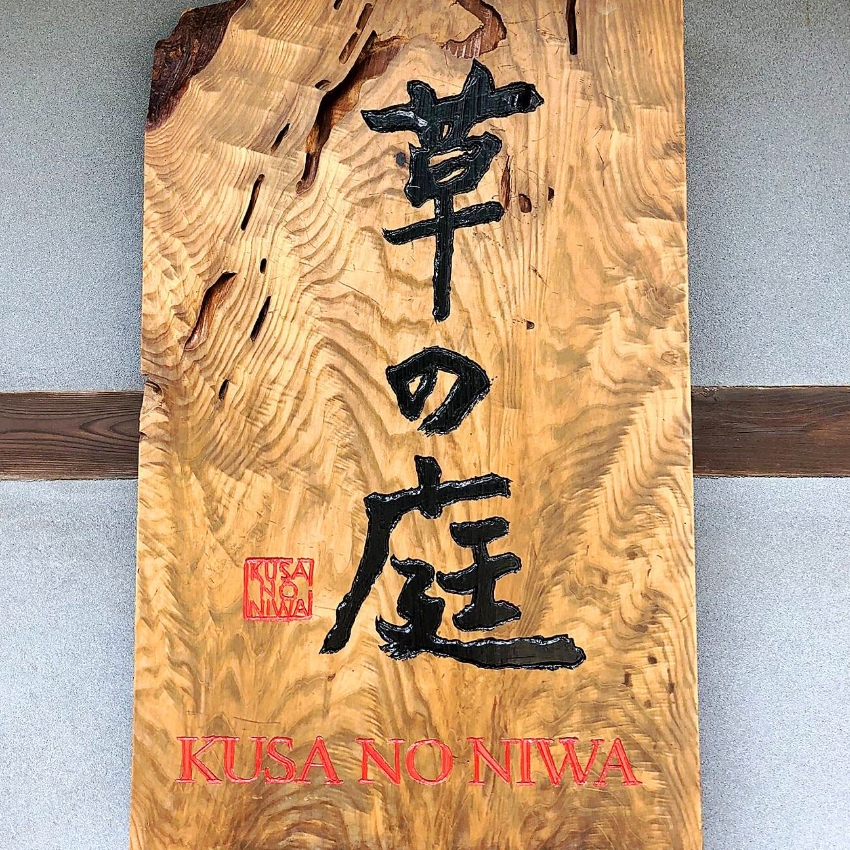 草の庭
KUSA
NO
NIWA
KUSA NO NIWA